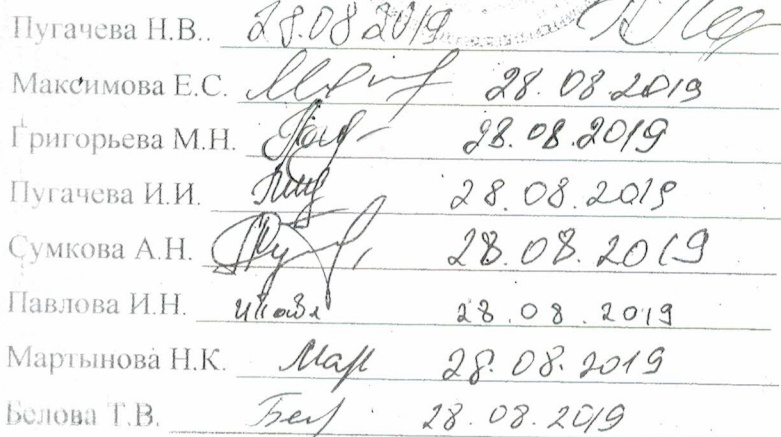 Пугачева Н.В.. 28.08 2019
Максимова Е.С. 28.08 2019
Григорьева М.Н. 28.08.2019
Пугачева И.И. 28.08.2019
Сумкова А.Н. 28.08.2019
Павлова И.Н. 28.08.2019
Мартынова Н.К. Мар 28.08.2019
Белова Т.В. Бел 28.08.2019